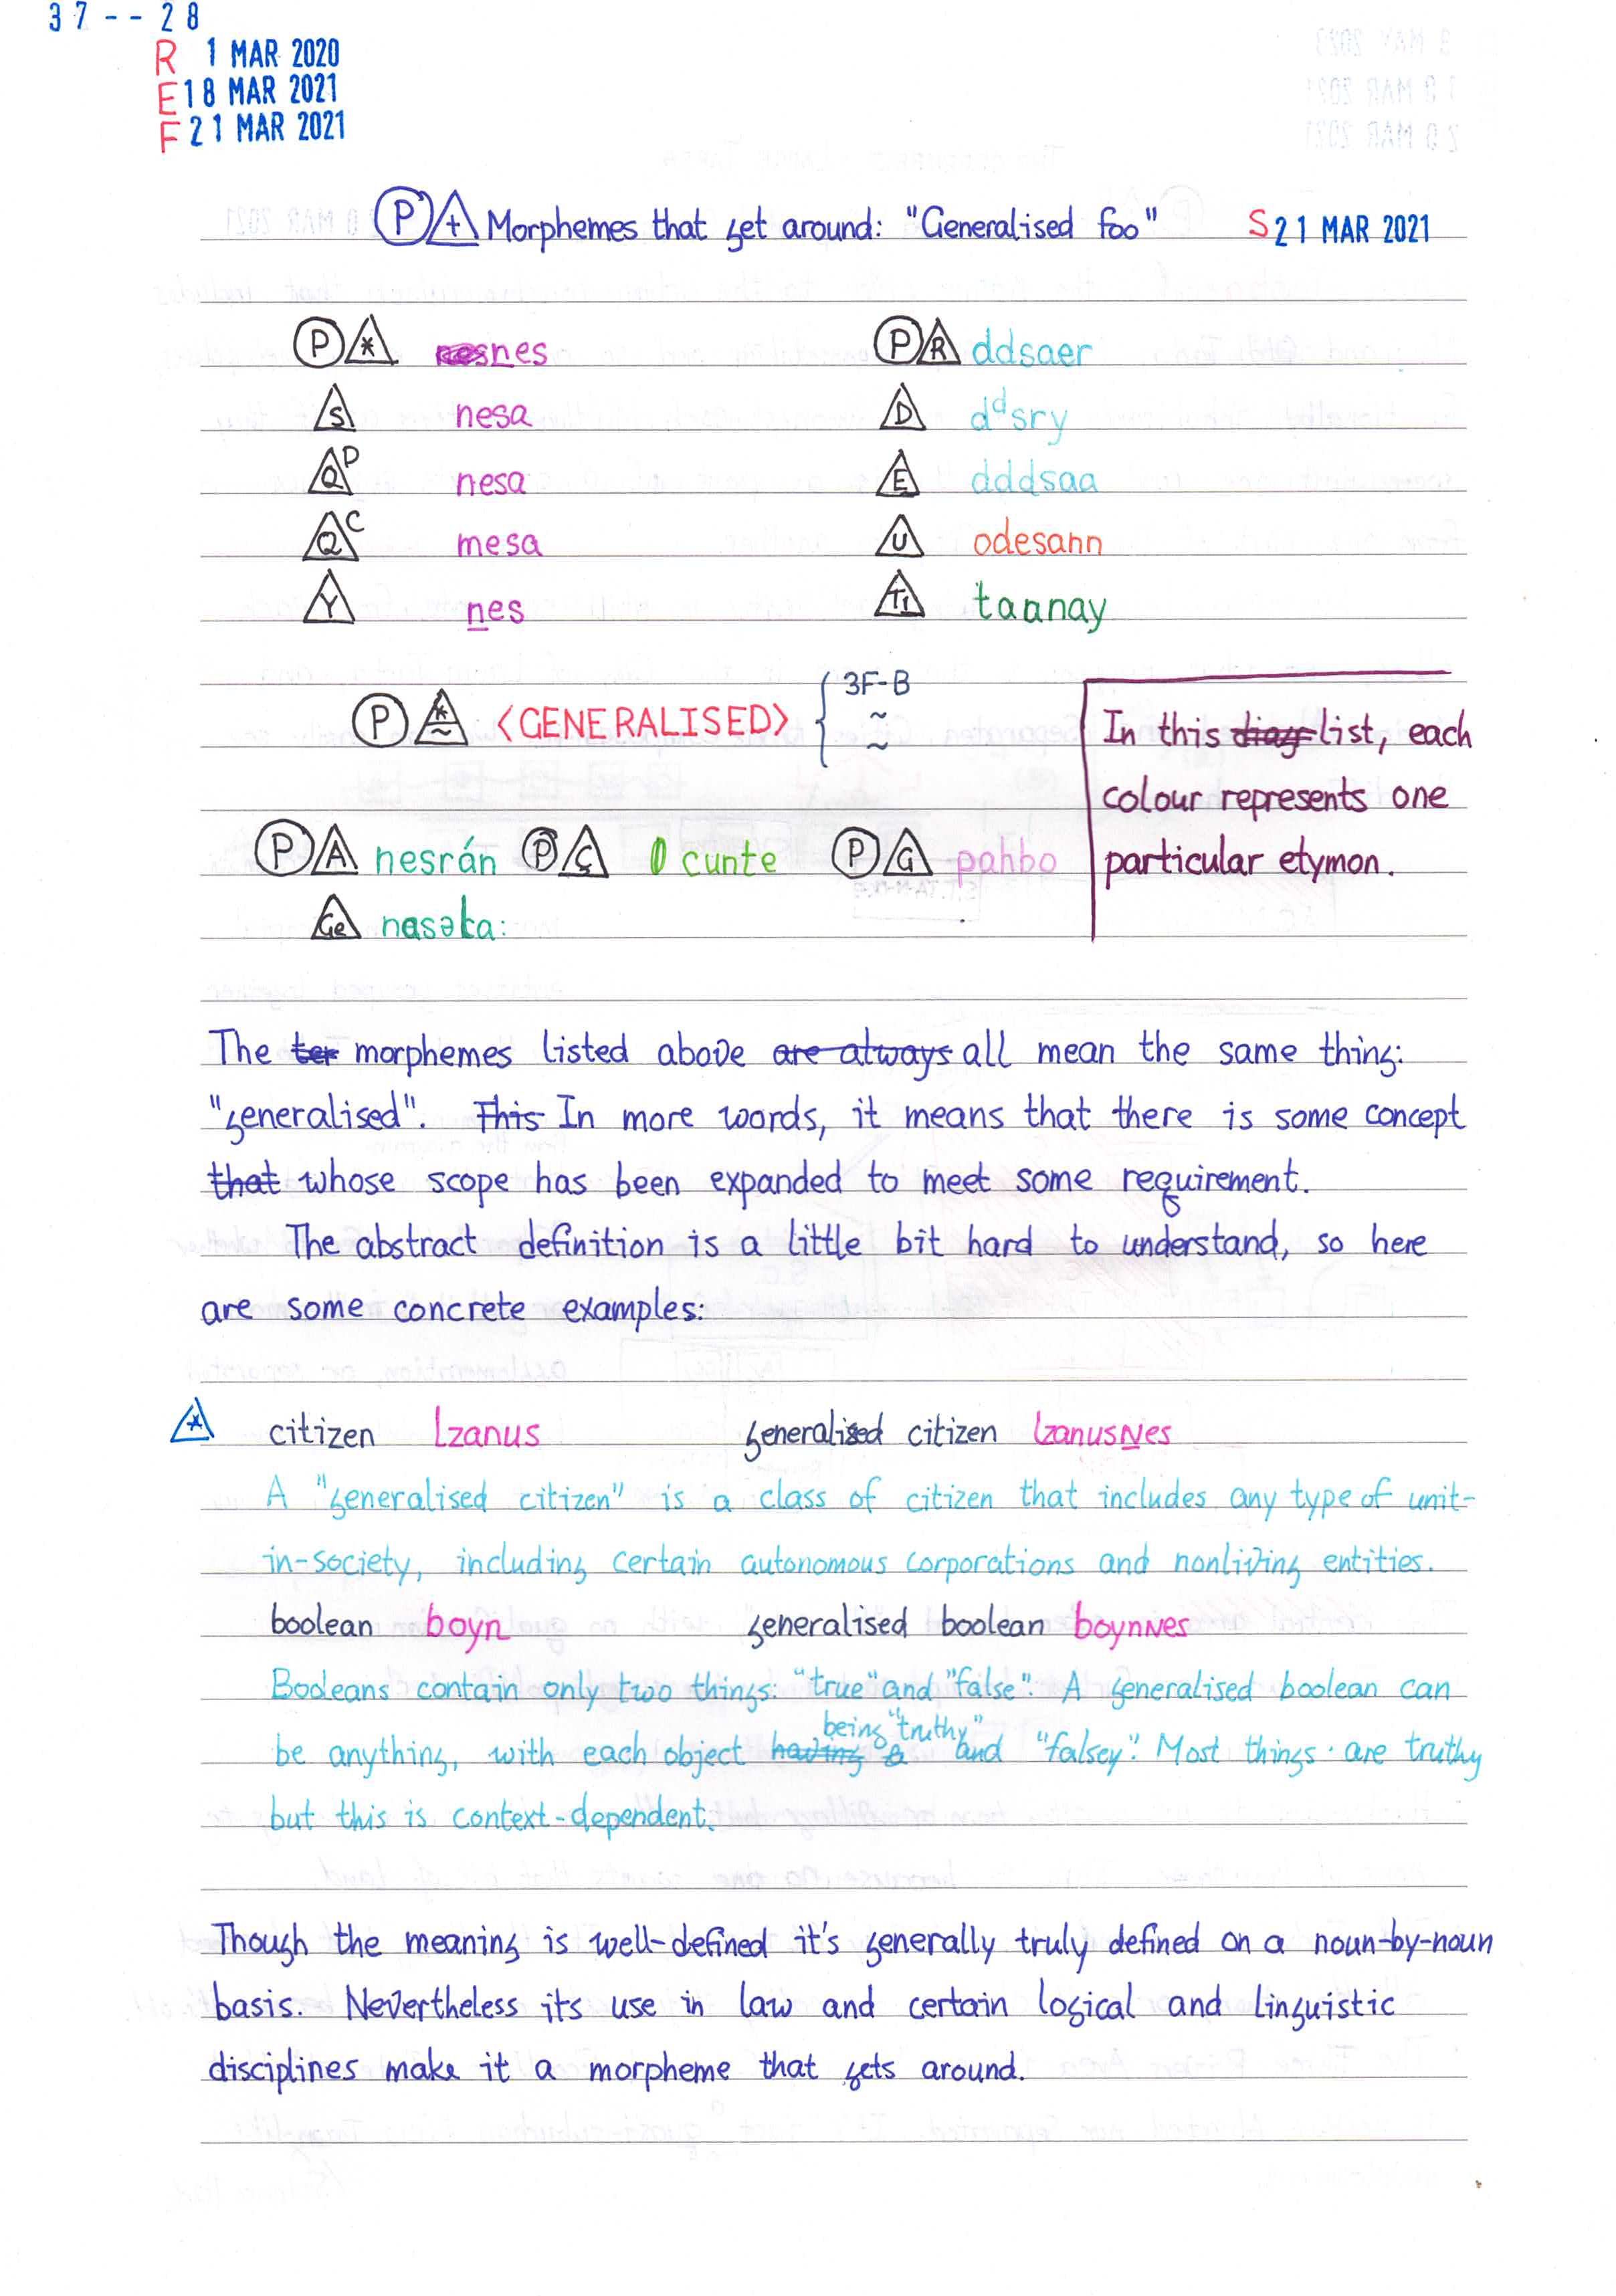 37--28
R 1 MAR 2020
E 18 MAR 2021
F 21 MAR 2021
P + Morphemes that get around: "Generalised foo" S 21 MAR 2021
P * nes P R ddsaer
S nesa D dᵈsry
Q D nesa E dddsaa
Q C mesa U odesann
Y nes T1 taanay
P * ~ <GENERALISED> { 3F-B ~ ~
In this diag list, each
colour represents one
particular etymon.
P A nesrán P Ç cunte P G pahbo
Ge nasəta:
The ter morphemes listed above are always all mean the same thing:
"generalised". This In more words, it means that there is some concept
that whose scope has been expanded to meet some requirement.
The abstract definition is a little bit hard to understand, so here
are some concrete examples:
* citizen lzanus generalised citizen lzanusNes
A "generalised citizen" is a class of citizen that includes any type of unit-
in-society, including certain autonomous corporations and nonliving entities.
boolean boyn generalised boolean boynNes
Booleans contain only two things: "true" and "false". A generalised boolean can
be anything, with each object having a being "truthy" and "falsey". Most things are truthy
but this is context-dependent.
Though the meaning is well-defined it's generally truly defined on a noun-by-noun
basis. Nevertheless its use in law and certain logical and linguistic
disciplines make it a morpheme that gets around.